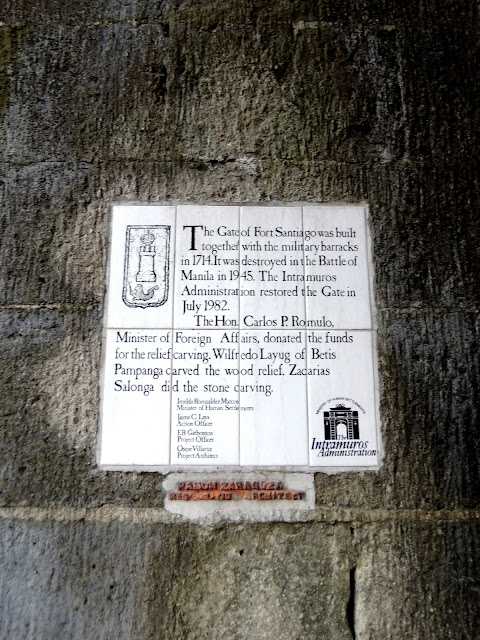 The Gate of Fort Santiago was built
together with the military barracks
in 1714. It was destroyed in the Battle of
Manila in 1945. The Intramuros
Administration restored the Gate in
July 1982.
The Hon. Carlos P. Romulo,
Minister of Foreign Affairs, donated the funds
for the relief carving. Wilfredo Layug of Betis
Pampanga carved the wood relief. Zacarias
Salonga did the stone carving.
Imelda Romualdez Marcos
Minister of Human Settlements
Jaime C. Laya
Action Officer
E.B. Garbonton
Project Officer
Oscar Villaruz
Project Architect
MINISTRY OF HUMAN SETTLEMENTS
The
Intramuros
Administration
RAMON ZARAGOZA
ARCHITECT